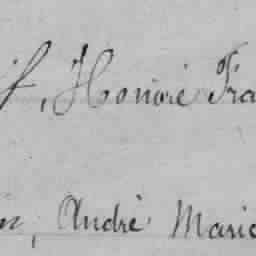 f, Honoré Fra
n, André Marie